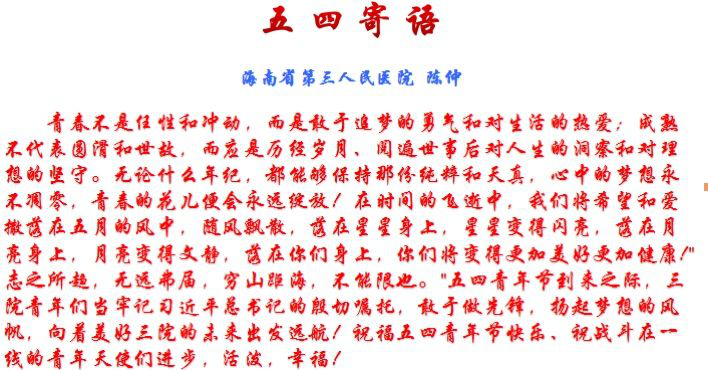 五四寄语
海南省第三人民医院 陈仲
青春不是任性和冲动，而是敢于追梦的勇气和对生活的热爱；成熟
不代表圆滑和世故，而应是历经岁月、阅遍世事后对人生的洞察和对理
想的坚守。无论什么年纪，都能够保持那份纯粹和天真，心中的梦想永
不凋零，青春的花儿便会永远绽放！在时间的飞逝中，我们将希望和爱
撒落在五月的风中，随风飘散，落在星星身上，星星变得闪亮，落在月
亮身上，月亮变得文静，落在你们身上，你们将变得更加美好更加健康！"
志之所趋，无远弗届，穷山距海，不能限也。"五四青年节到来之际，三
院青年们当牢记习近平总书记的殷切嘱托，敢于做先锋，扬起梦想的风
帆，向着美好三院的未来出发远航！祝福五四青年节快乐、祝战斗在一
线的青年天使们进步，活泼，幸福！